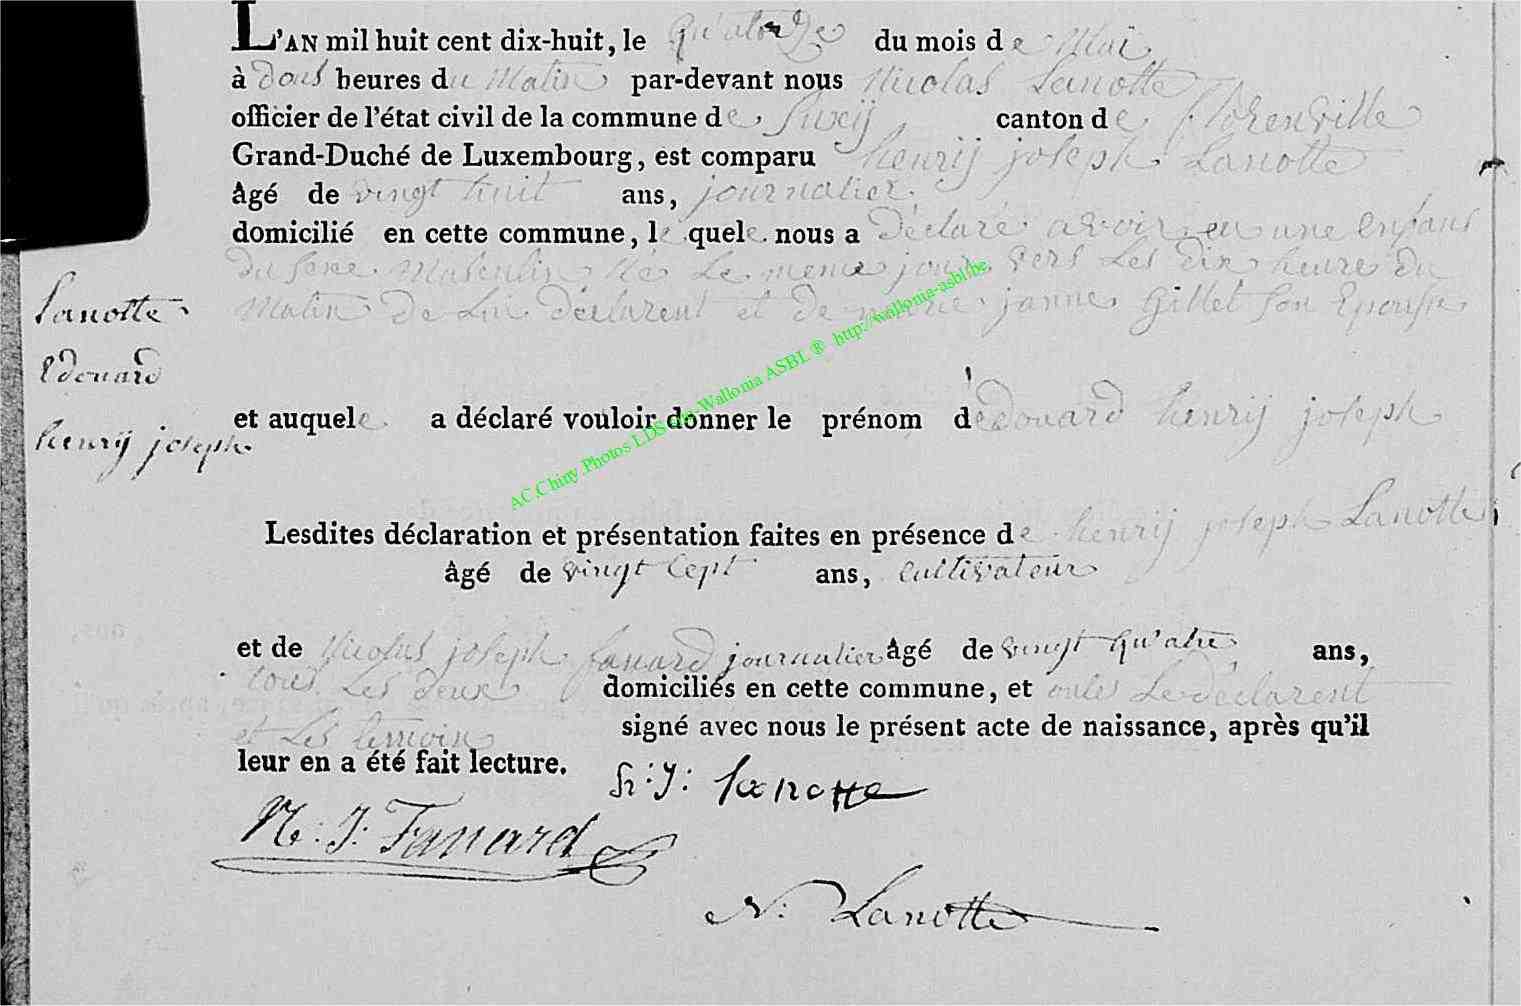 L'AN mil huit cent dix-huit, le Quatorze du mois de Mai
à dous heures du Matin par-devant nous Nicolas Lanotte
officier de l'état civil de la commune de Suxÿ canton de florenville
Grand-Duché de Luxembourg, est comparu henrÿ joseph Lanotte
âgé de vingt huit ans, journalier
domicilié en cette commune, le quele nous a déclaré avoir eu une enfant
du sexe Masculin né le meme jour vers les dix heure du
Matin de Lui déclarent et de marie janne Gillet son Epousse
Lanotte
Edouard
henrÿ joseph
et auquele a déclaré vouloir donner le prénom d'édouard henrÿ joseph
Lesdites déclaration et présentation faites en présence de henrÿ joseph Lanotte
âgé de vingt cept ans, cultivateur
et de Nicolas joseph fanard journalier âgé de vingt qu'atre ans,
tous Les deux domiciliés en cette commune, et Le déclarent
et Les temoin signé avec nous le présent acte de naissance, après qu'il
leur en a été fait lecture.
h: J: Lanotte
N: J: Fanard
N: Lanotte
AC.Chiny Photos LDS via-Wallonia ASBL ® http://wallonia-asbl.be